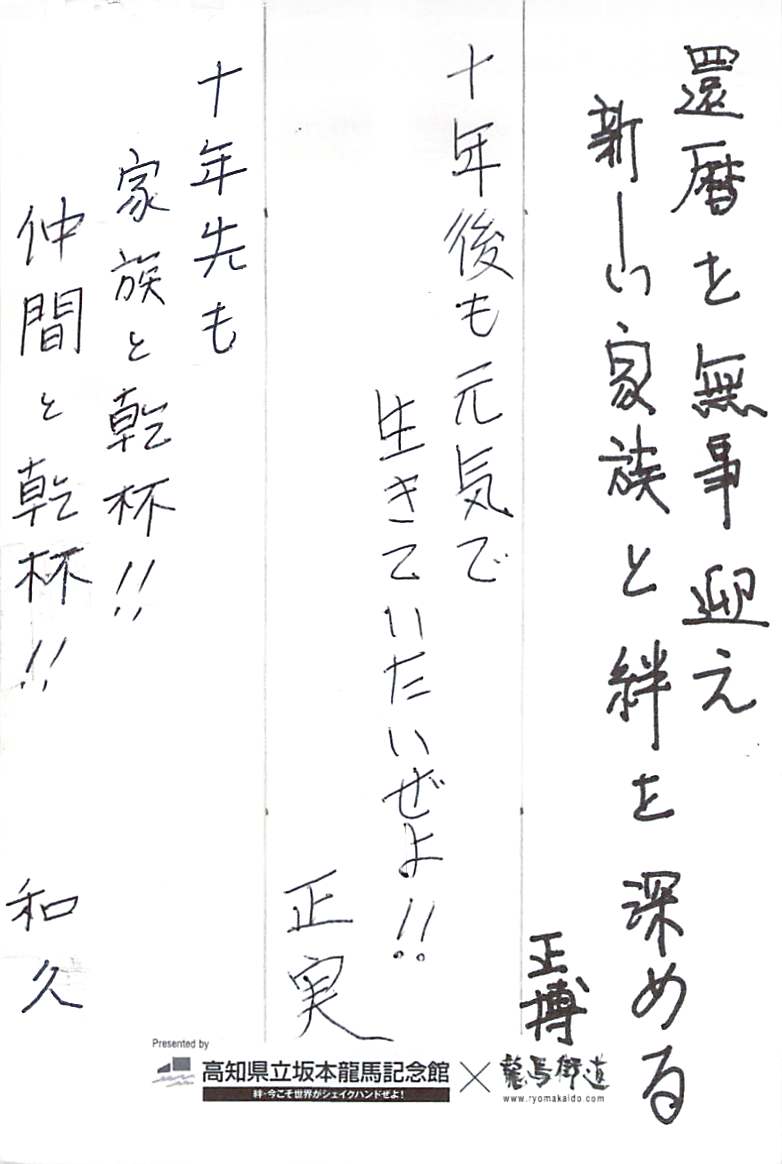 還暦を無事迎え
新しい家族と絆を深める
正博
十年後も元気で
生きていたいぜよ!!
正実
十年先も
家族と乾杯!!
仲間と乾杯!!
和久
Presented by
高知県立坂本龍馬記念館×龍馬街道
絆・今こそ世界がシェイクハンドぜよ!
www.ryomakaido.com